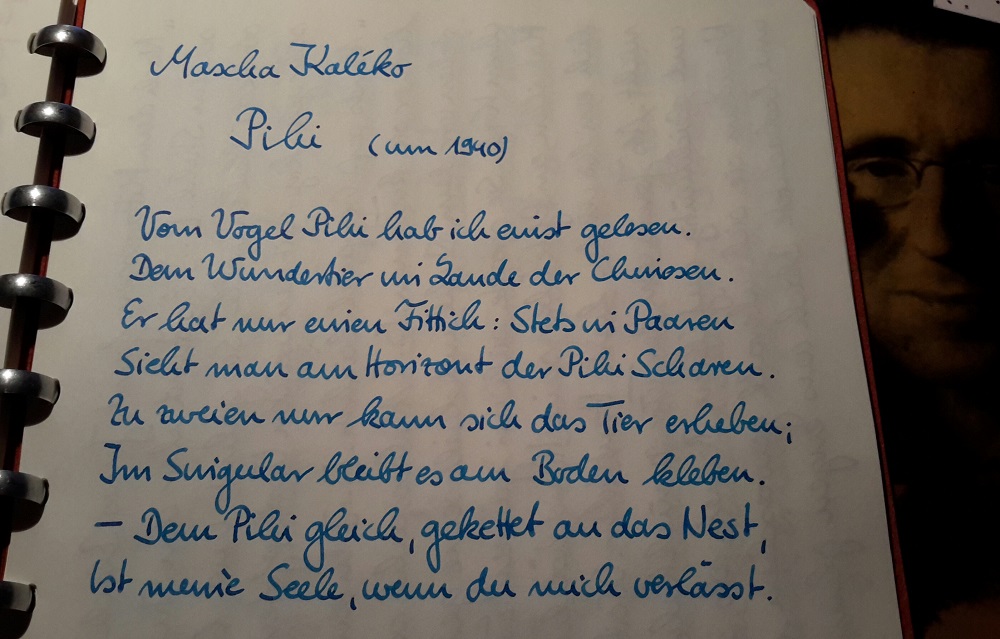 Mascha Kaléko
Pihi (um 1940)
Vom Vogel Pihi hab ich einst gelesen.
Dem Wundertier im Lande der Chinesen.
Er hat nur einen Fittich: Stets in Paaren
Sieht man am Horizont der Pihi Scharen.
Zu zweien nur kann sich das Tier erheben;
Im Singular bleibt es am Boden kleben.
– Dem Pihi gleich, gekettet an das Nest,
Ist meine Seele, wenn du mich verlässt.